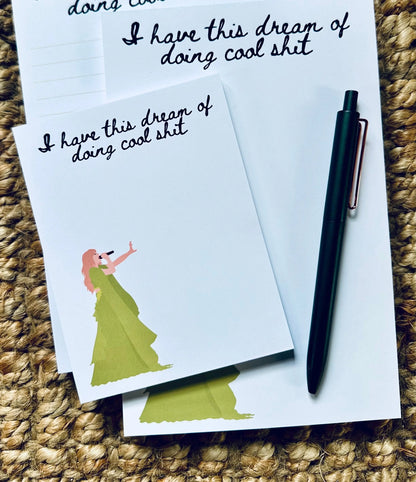 doing cool
I have this dream of
doing cool shit
I have this dream of
doing cool shit